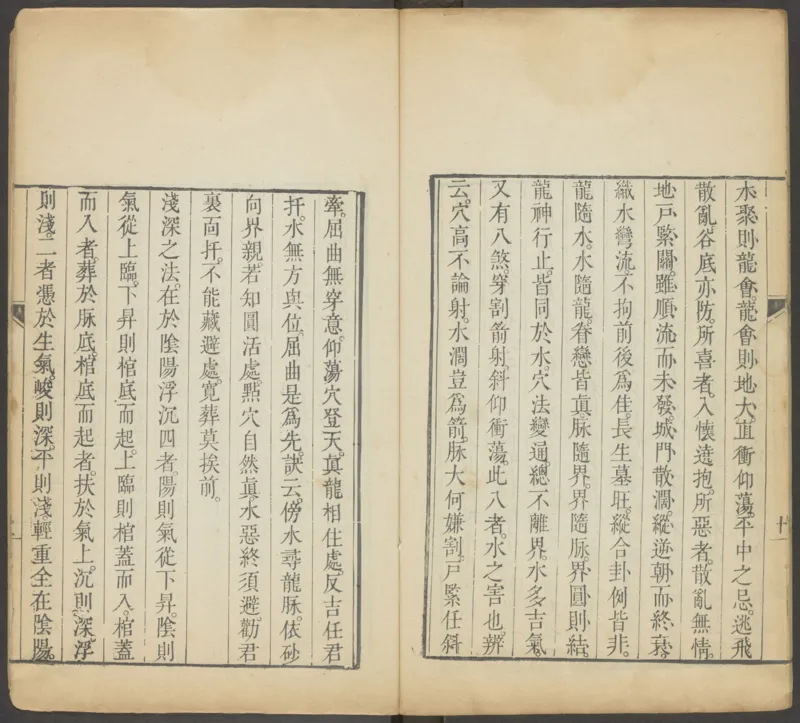 水聚則龍會龍會則地大直衝仰蕩平中之忌逃飛
散亂谷底亦防。所喜者入懷遶抱。所惡者散亂無情。
地戶緊關。雖順流而未發。城門散濶。縱逆朝而終衰。
織水彎流。不拘前後爲佳。長生墓旺。縱合卦例皆非。
龍隨水。水隨龍。眷戀皆眞。脉隨界。界隨脉。界圓則結。
龍神行止。皆同於水。穴法變通。總不離界。水多吉氣。
又有八煞。穿割箭射。斜仰衝蕩。此八者。水之害也。辨
云。穴高不論射。水濶豈爲箭。脉大何嫌割。戶緊任斜
十一
牽。屈曲無穿意。仰蕩穴登天。眞龍相住處。反吉任君
扦。水無方與位。屈曲是爲先。訣云。傍水尋龍脉。依砂
向界親。若知圓活處。點穴自然眞。水惡終須避。勸君
裏面扦。不能藏避處。寛葬莫挨前。
淺深之法。在於陰陽浮沉四者。陽則氣從下昇。陰則
氣從上臨。下昇則棺底而起。上臨則棺蓋而入。棺蓋
而入者。葬於脉底。棺底而起者。扶於氣上。沉則深。浮
則淺。二者憑於生氣。峻則深。平則淺。輕重全在陰陽。